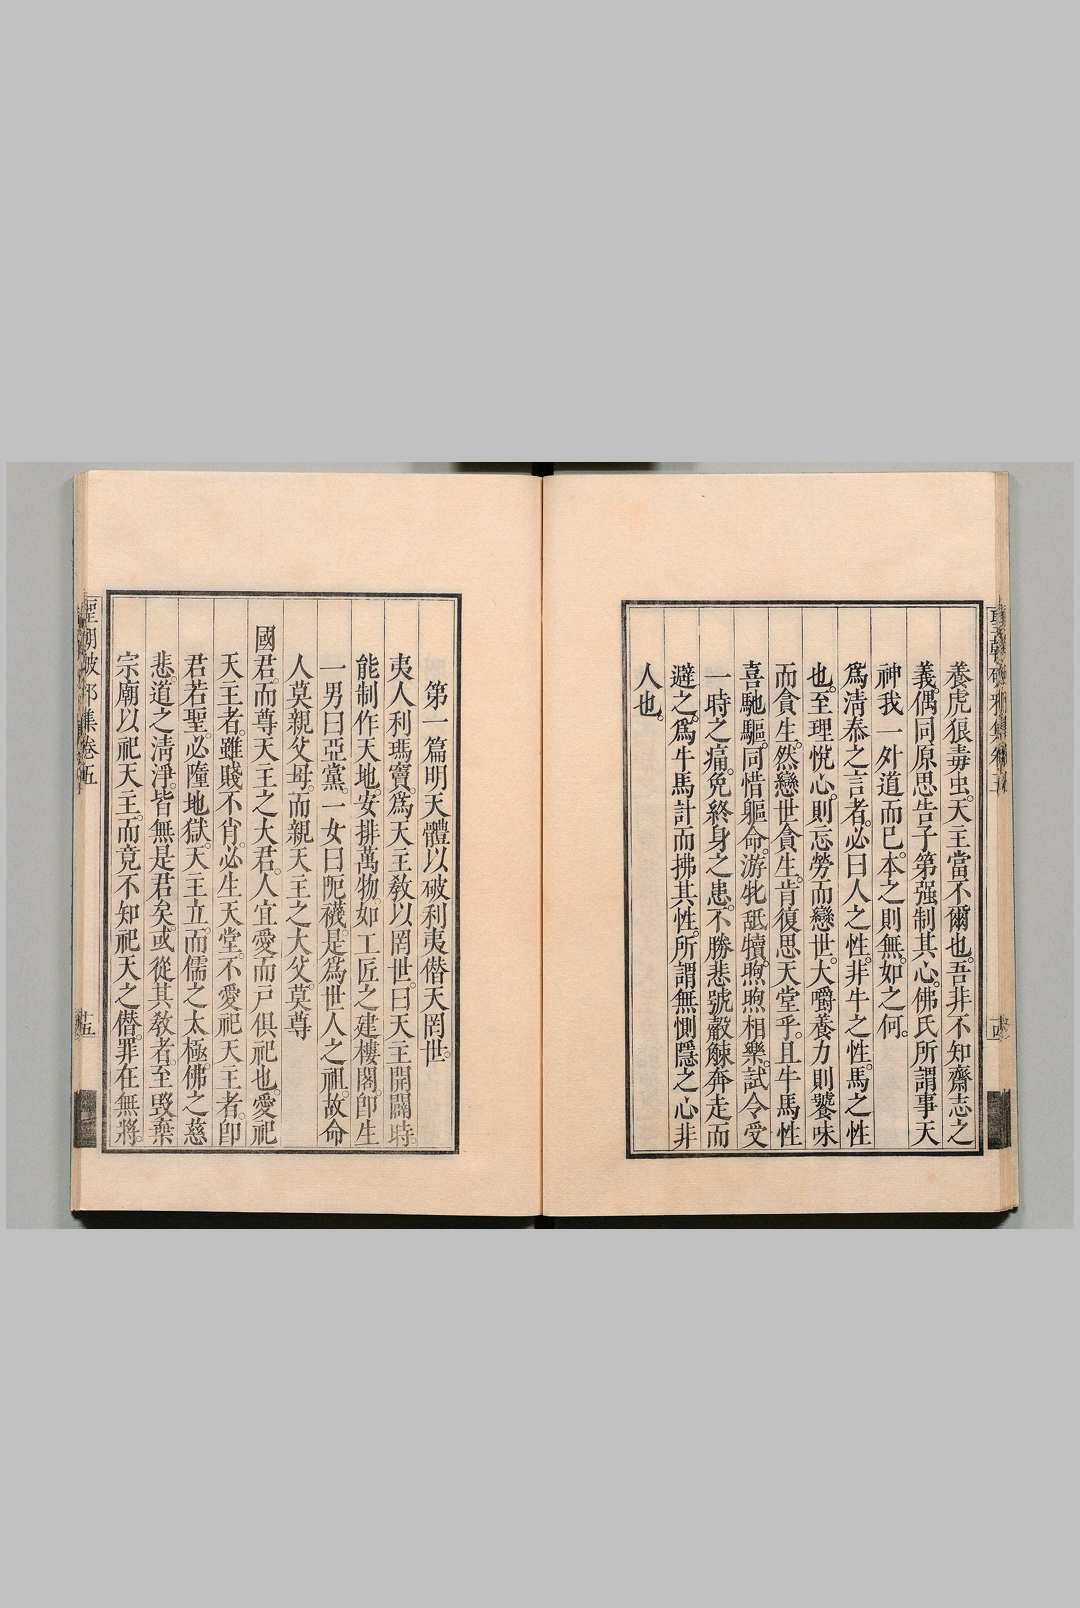 養虎狼毒虫。天主當不爾也。吾非不知齋志之
義。偶同原思告子第强制其心。佛氏所謂事天
神我一外道而已。本之則無。如之何。
爲清奉之言者。必曰人之性。非牛之性。馬之性
也。至理悅心。則忘勞而戀世。大嚼養力則饕味
而貪生。然戀世貪生。肯復思天堂乎。且牛馬性
喜馳驅。同惜軀命。游牝舐犢。煦煦相樂。試令受
一時之痛。免終身之患。不勝悲號觳觫奔走而
避之。爲牛馬計而拂其性。所謂無惻隱之心非
人也。
第一篇明天體以破利夷僭天罔世。
夷人利瑪竇。爲天主敎以罔世。曰天主開闢時
能制作天地。安排萬物。如工匠之建樓閣。卽生
一男曰亞黨。一女曰阨襪。是爲世人之祖。故命
人莫親父母。而親天主之大父。莫尊
國君。而尊天主之大君。人宜愛而戸俱祀也。愛祀
天主者。雖賤不肖。必生天堂。不愛祀天主者。卽
君若聖。必墮地獄。天主立。而儒之太極。佛之慈
悲。道之淸淨。皆無是君矣。或從其敎者。至毀棄
宗廟以祀天主。而竟不知祀天之僭。罪在無將。
聖朝破邪集卷五
十五